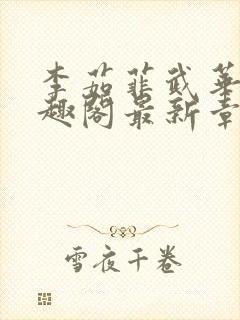 李茹菲武华
趣阁最新章
雪夜千卷